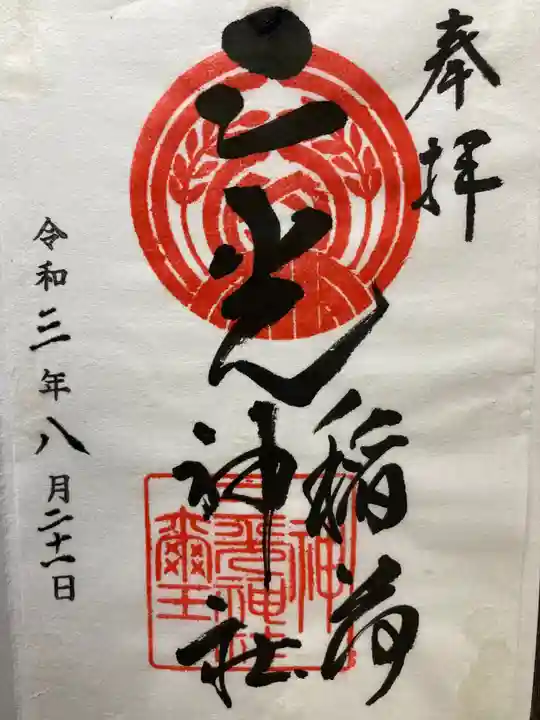 奉拝
三光
稲荷
神社
令和三年八月二十一日
三光神社
神璽